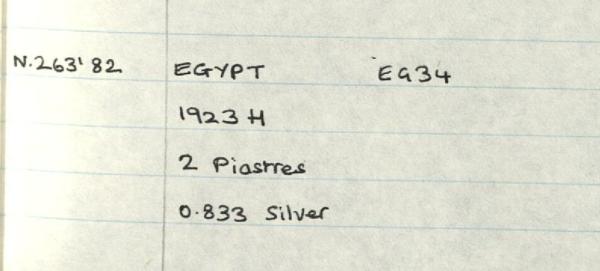 N.263'82 EGYPT EG34
1923 H
2 Piastres
0.833 Silver